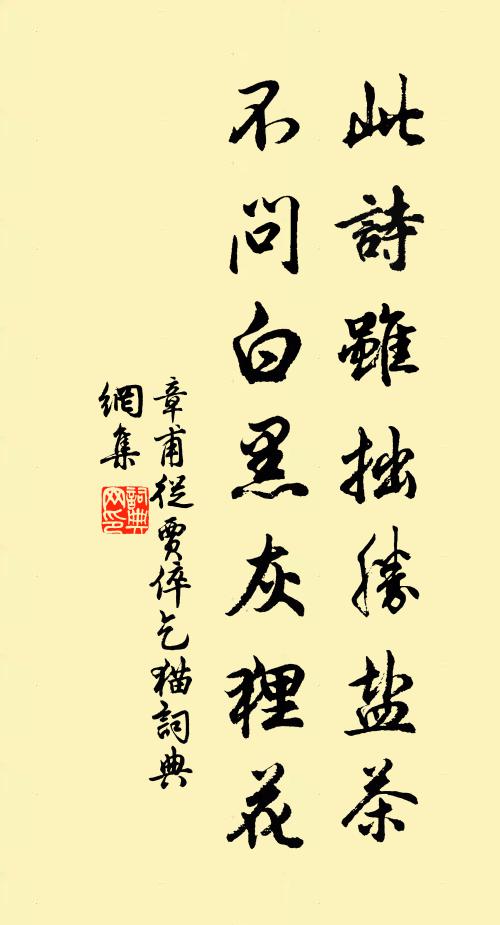 此詩雖拙勝盐茶
不問白黑灰狸花
章甫從賈倅乞猫詞典
網集
詞典
网印